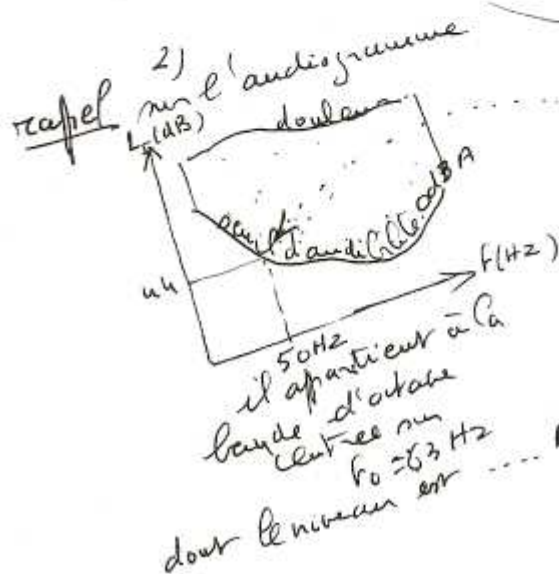 2)
rappel sur l'audiogramme
L (dB)
douleur
seuil d'audibilité 0dB A
44
f(HZ)
50HZ
il apartient à la
bande d'octave
centrée sur
f0 = 63 HZ
dont le niveau est ....